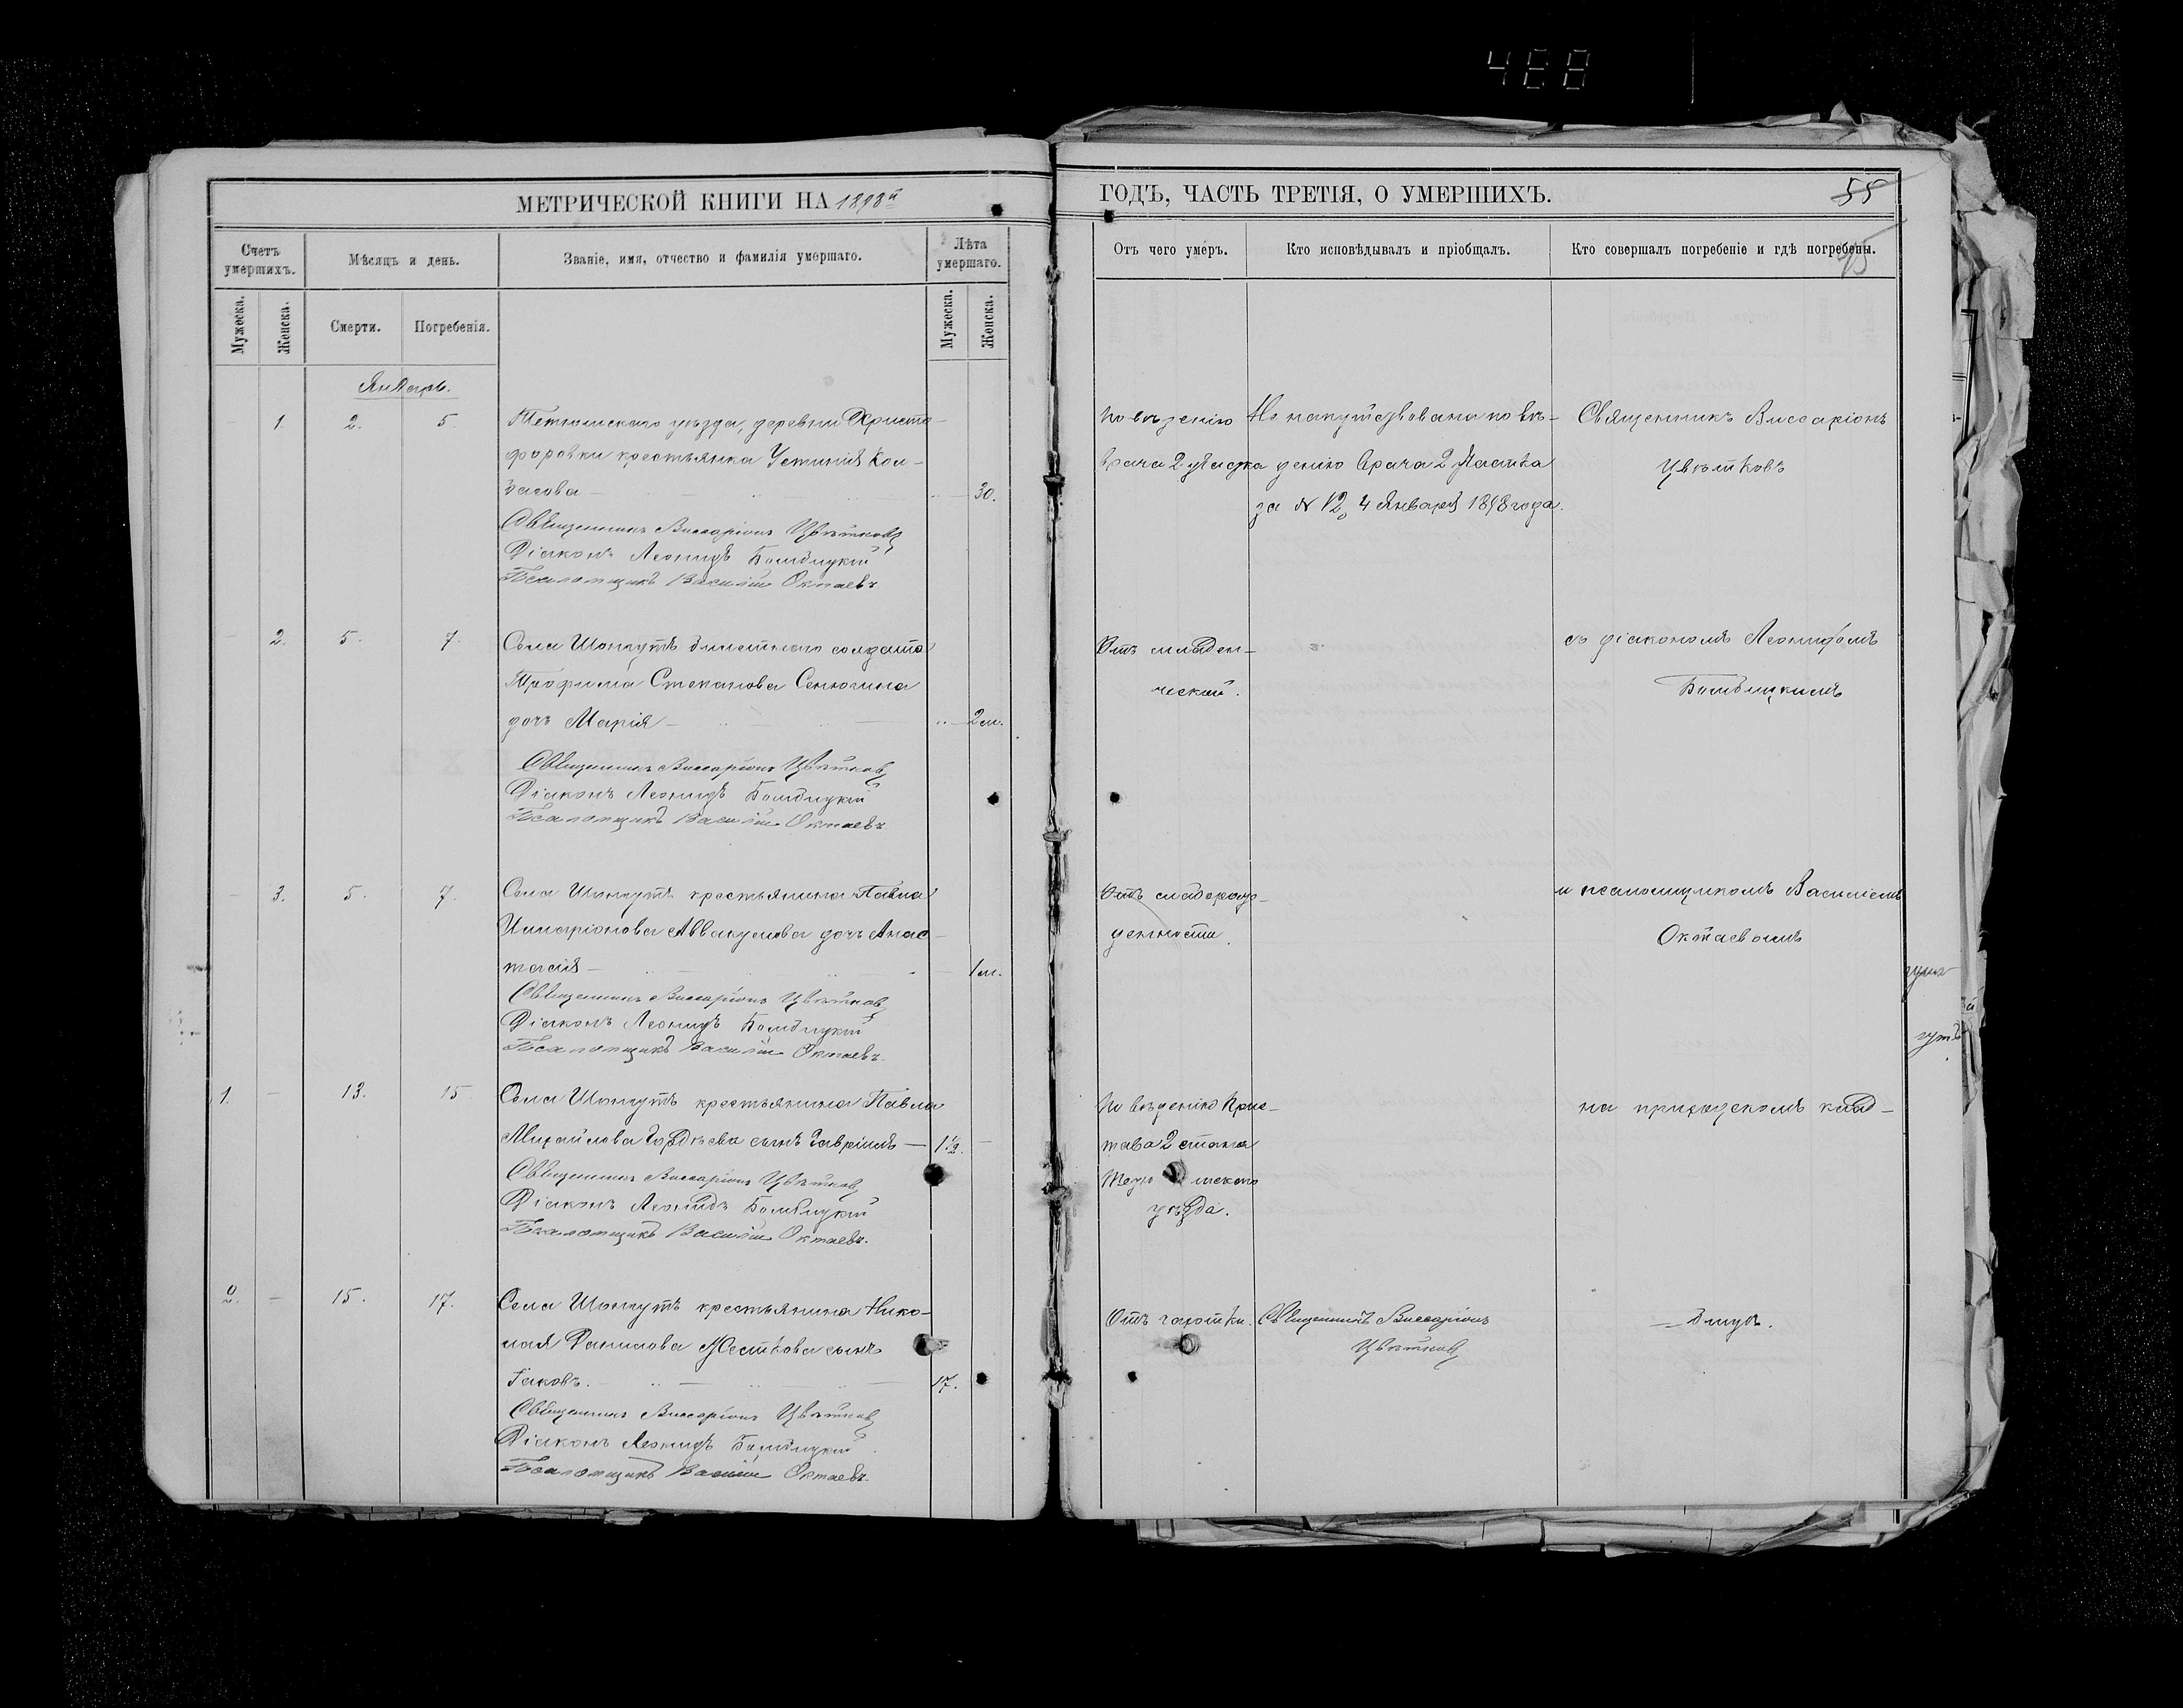 488
МЕТРИЧЕСКОЙ КНИГИ НА 1898й
ГОДЪ, ЧАСТЬ ТРЕТІЯ, О УМЕРШИХЪ.
55
Счетъ умершихъ.
Мѣсяцъ и день.
Званіе, имя, отчество и фамилія умершаго.
Лѣта умершаго.
Отъ чего умеръ.
Кто исповѣдывалъ и пріобщалъ.
Кто совершалъ погребеніе и гдѣ погребены.
Мужеска.
Женска.
Смерти.
Погребенія.
Мужеска.
Женска.
Январь.
1. 2. 5.
Тетюшскаго уѣзда, деревни Христо-
форовки крестьянка Устинія
30.
Священникъ Виссаріонъ Цвѣтковъ
Діаконъ Леонидъ
Псаломщикъ Василій Октаевъ
По вѣденію
врача 2 участка
Не напутствована по вѣ-
денію врача 2 участка
за № 12, 4 Января 1898 года.
Священникъ Виссаріонъ
Цвѣтковъ
2. 5. 7.
Села Шонгутъ билетнаго солдата
Трофима Степанова Сенюгина
дочь Марія
2 м.
Священникъ Виссаріонъ Цвѣтковъ
Діаконъ Леонидъ
Псаломщикъ Василій Октаевъ
Отъ младен-
ческой.
съ діакономъ Леонидомъ
3. 5. 7.
Села Шонгутъ крестьянина Павла
Иларіонова Аввакумова дочь Анас-
тасія
1 м.
Священникъ Виссаріонъ Цвѣтковъ
Діаконъ Леонидъ
Псаломщикъ Василій Октаевъ.
Отъ слаборож-
денности.
и псаломщикомъ Василіемъ
Октаевымъ
1. 13. 15
Села Шонгутъ крестьянина Павла
Михайлова Гордѣева сынъ Гавріилъ
1½.
Священникъ Виссаріонъ Цвѣтковъ
Діаконъ Леонидъ
Псаломщикъ Василій Октаевъ.
По вѣденію Прис-
тава 2 стана
Тетюшскаго
уѣзда.
на приходскомъ клад-
2. 15. 17.
Села Шонгутъ крестьянина Нико-
лая Данилова Жесткова сынъ
Іаковъ.
17.
Священникъ Виссаріонъ Цвѣтковъ
Діаконъ Леонидъ
Псаломщикъ Василій Октаевъ.
Отъ чахотки.
Священникъ Виссаріонъ
Цвѣтковъ
бищѣ.